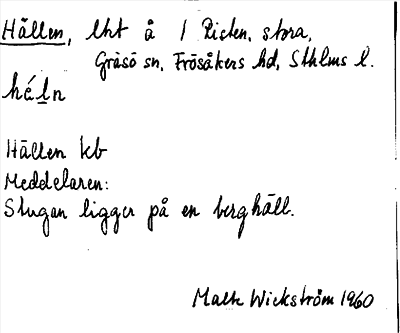 Hällen, lht å / Risten, stora,
Gräsö sn, Frösåkers hd, Sthlms l.
hél̲n
Hällen kb
Meddelaren:
Stugan ligger på en berghäll.
Malte Wickström 1960